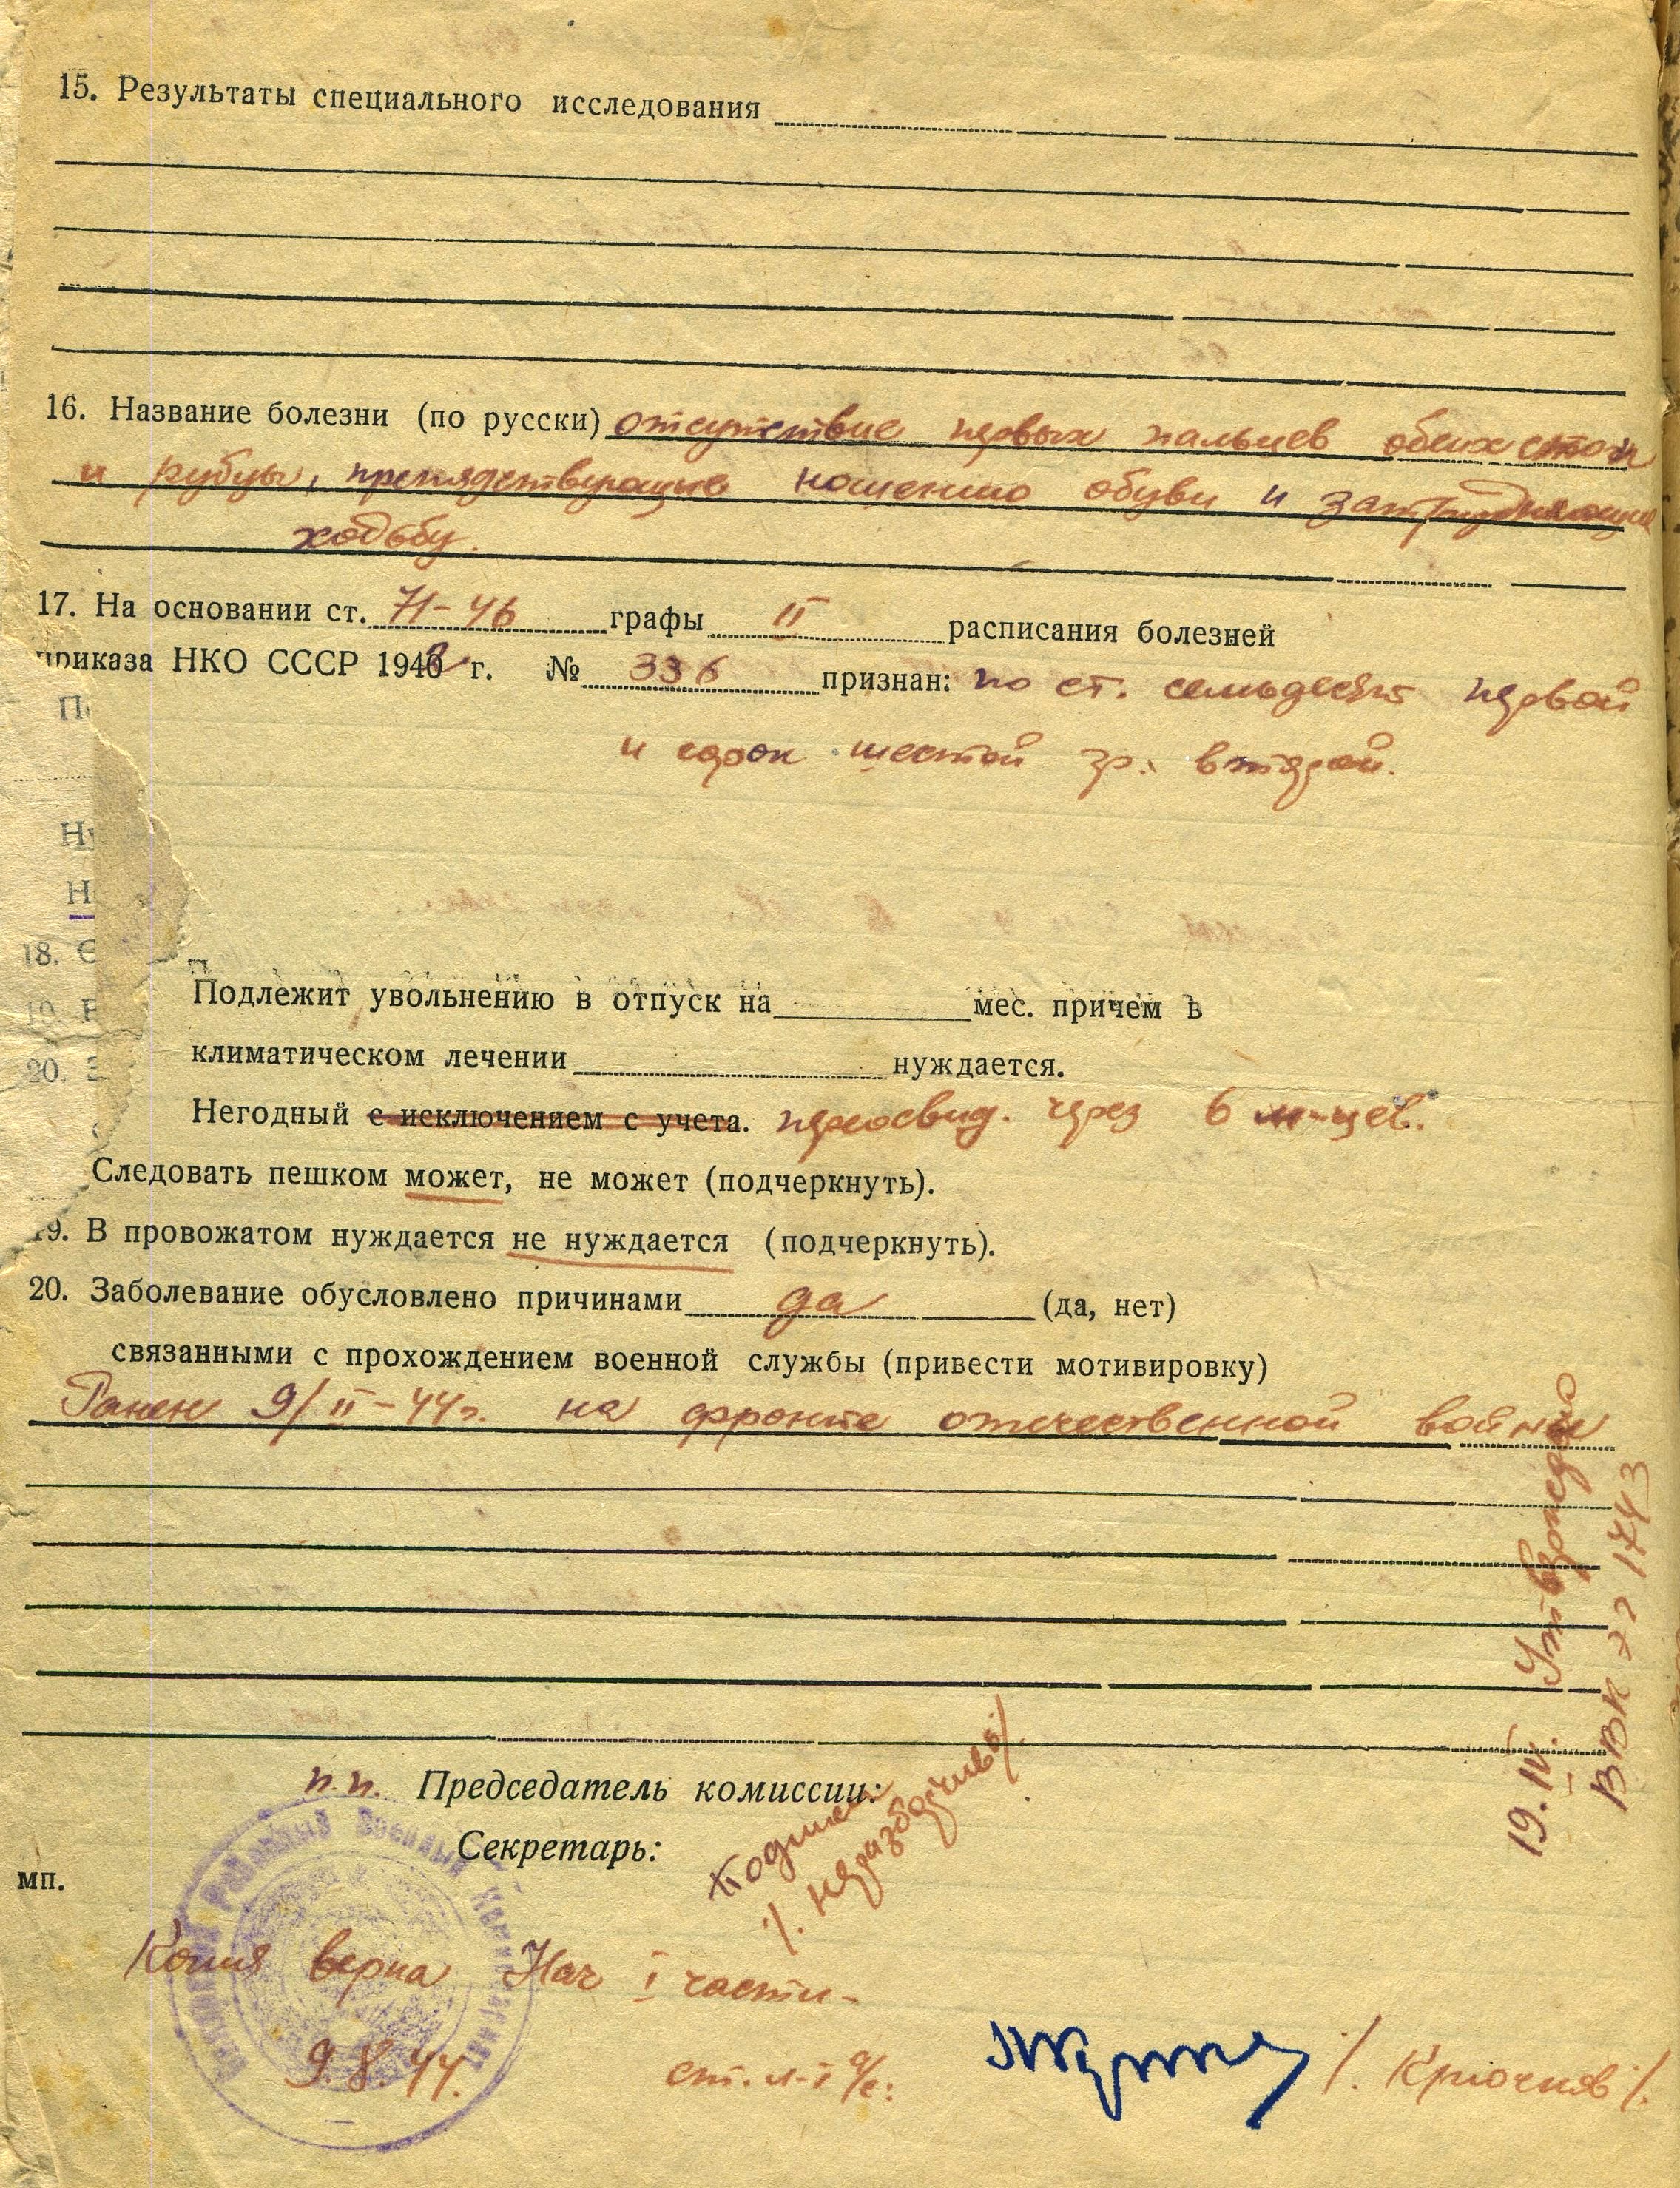 15. Результаты специального исследования
16. Название болезни (по русски) отсутствие первых пальцев обеих стоп
и рубцы, препядствующие ношению обуви и затрудняющие
ходьбу.
17. На основании ст. 71-46 графы II расписания болезней
приказа НКО СССР 1942 г. № 336 признан: по ст. семьдесят первой
и сорок шестой гр. второй.
Н
18.
20.
Подлежит увольнению в отпуск на мес. причем в
климатическом лечении нуждается.
Негодный с исключением с учета. переосвид. через 6 м-цев.
Следовать пешком может, не может (подчеркнуть).
19. В провожатом нуждается не нуждается (подчеркнуть).
20. Заболевание обусловлено причинами да (да, нет)
связанными с прохождением военной службы (привести мотивировку)
Ранен 9/II-44г. на фронте отечественной войны
19.IV. Утверждено
ВВК № 1743
п.п. Председатель комиссии:
Секретарь:
Подписи
/. неразборчиво /.
мп.
Районный Военный Комиссариат
Копия верна Нач I части-
9.8.44. ст. л-т а/с: /. Крючков /.